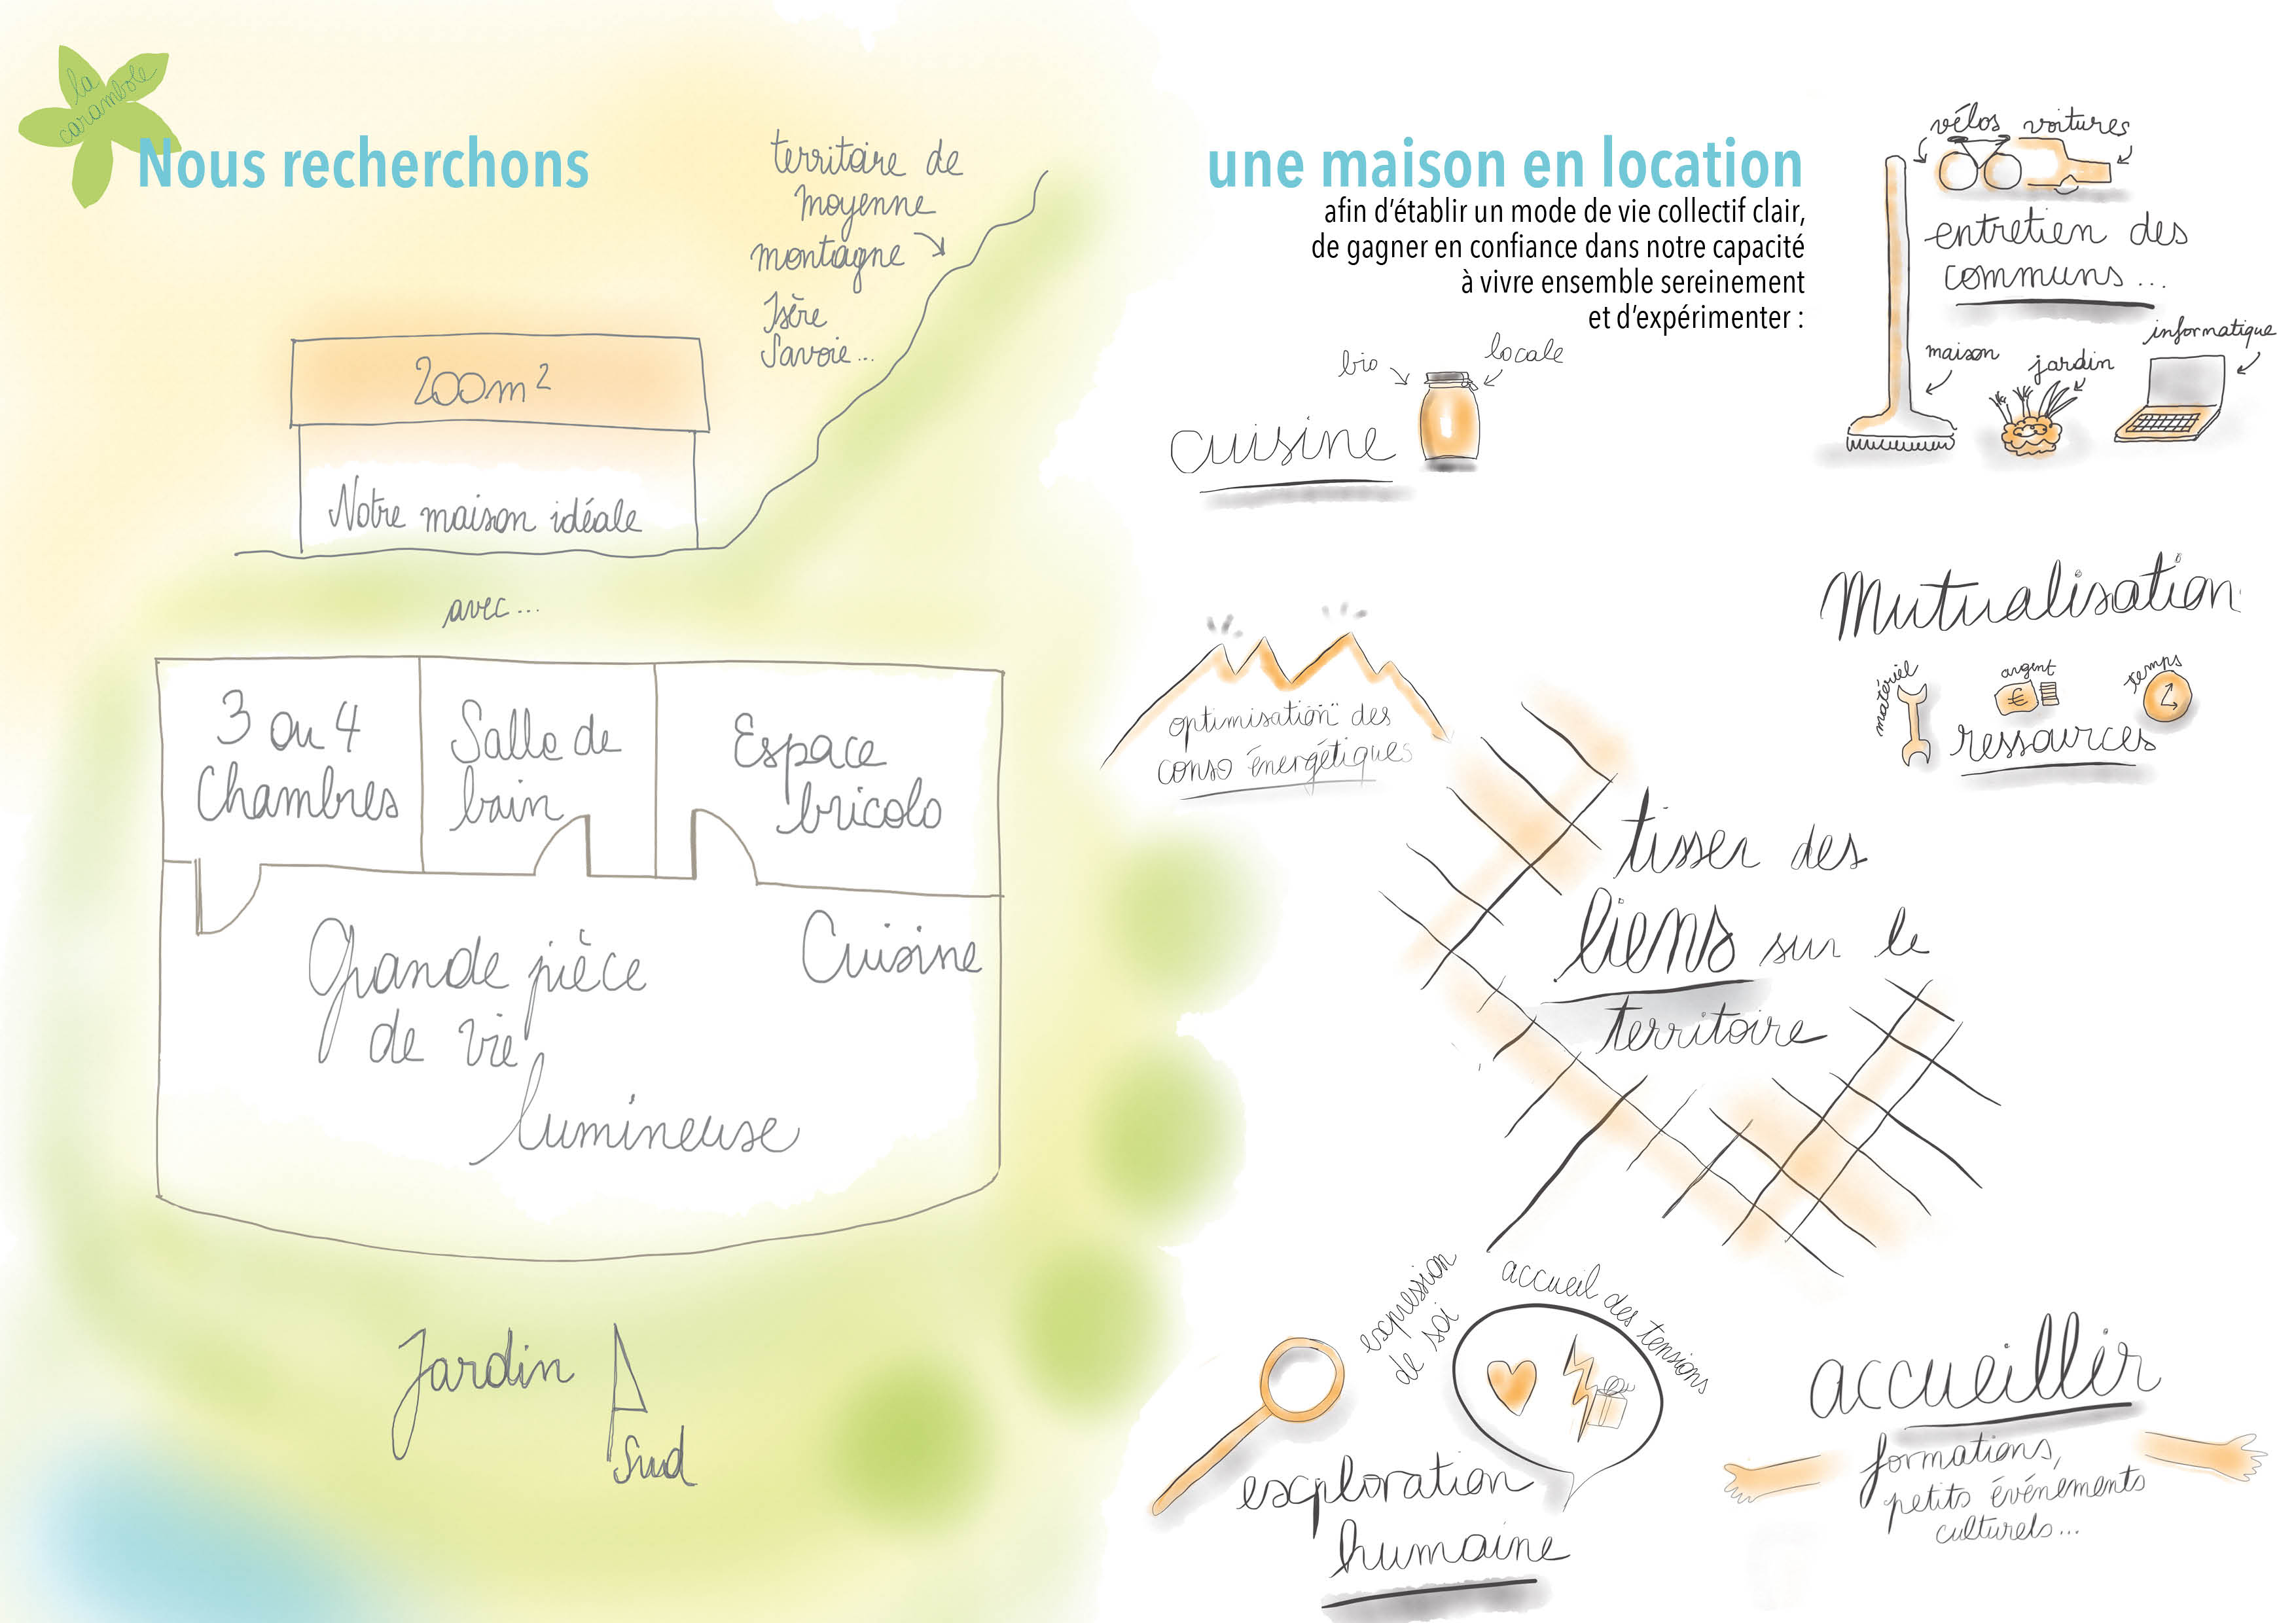 la
carambole
Nous recherchons
territoire de
moyenne
montagne
Isère
Savoie...
200m²
Notre maison idéale
avec...
3 ou 4
Chambres
Salle de
bain
Espace
bricolo
Grande pièce
de vie
lumineuse
Cuisine
Jardin
Sud
une maison en location
afin d'établir un mode de vie collectif clair,
de gagner en confiance dans notre capacité
à vivre ensemble sereinement
et d'expérimenter :
bio
locale
cuisine
vélos voitures
entretien des
communs...
maison
jardin
informatique
optimisation des
conso énergétiques
Mutualisation
matériel
argent
temps
ressources
tisser des
liens sur le
territoire
expression
de soi
accueil des tensions
exploration
humaine
accueillir
formations,
petits événements
culturels...